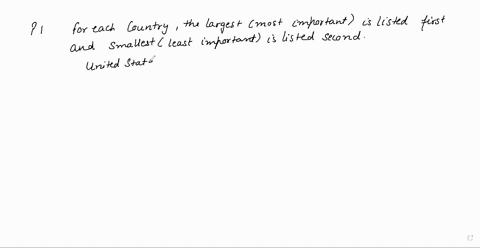 P1 for each Country, the largest (most important) is listed first
and smallest (least important) is listed second.
United State